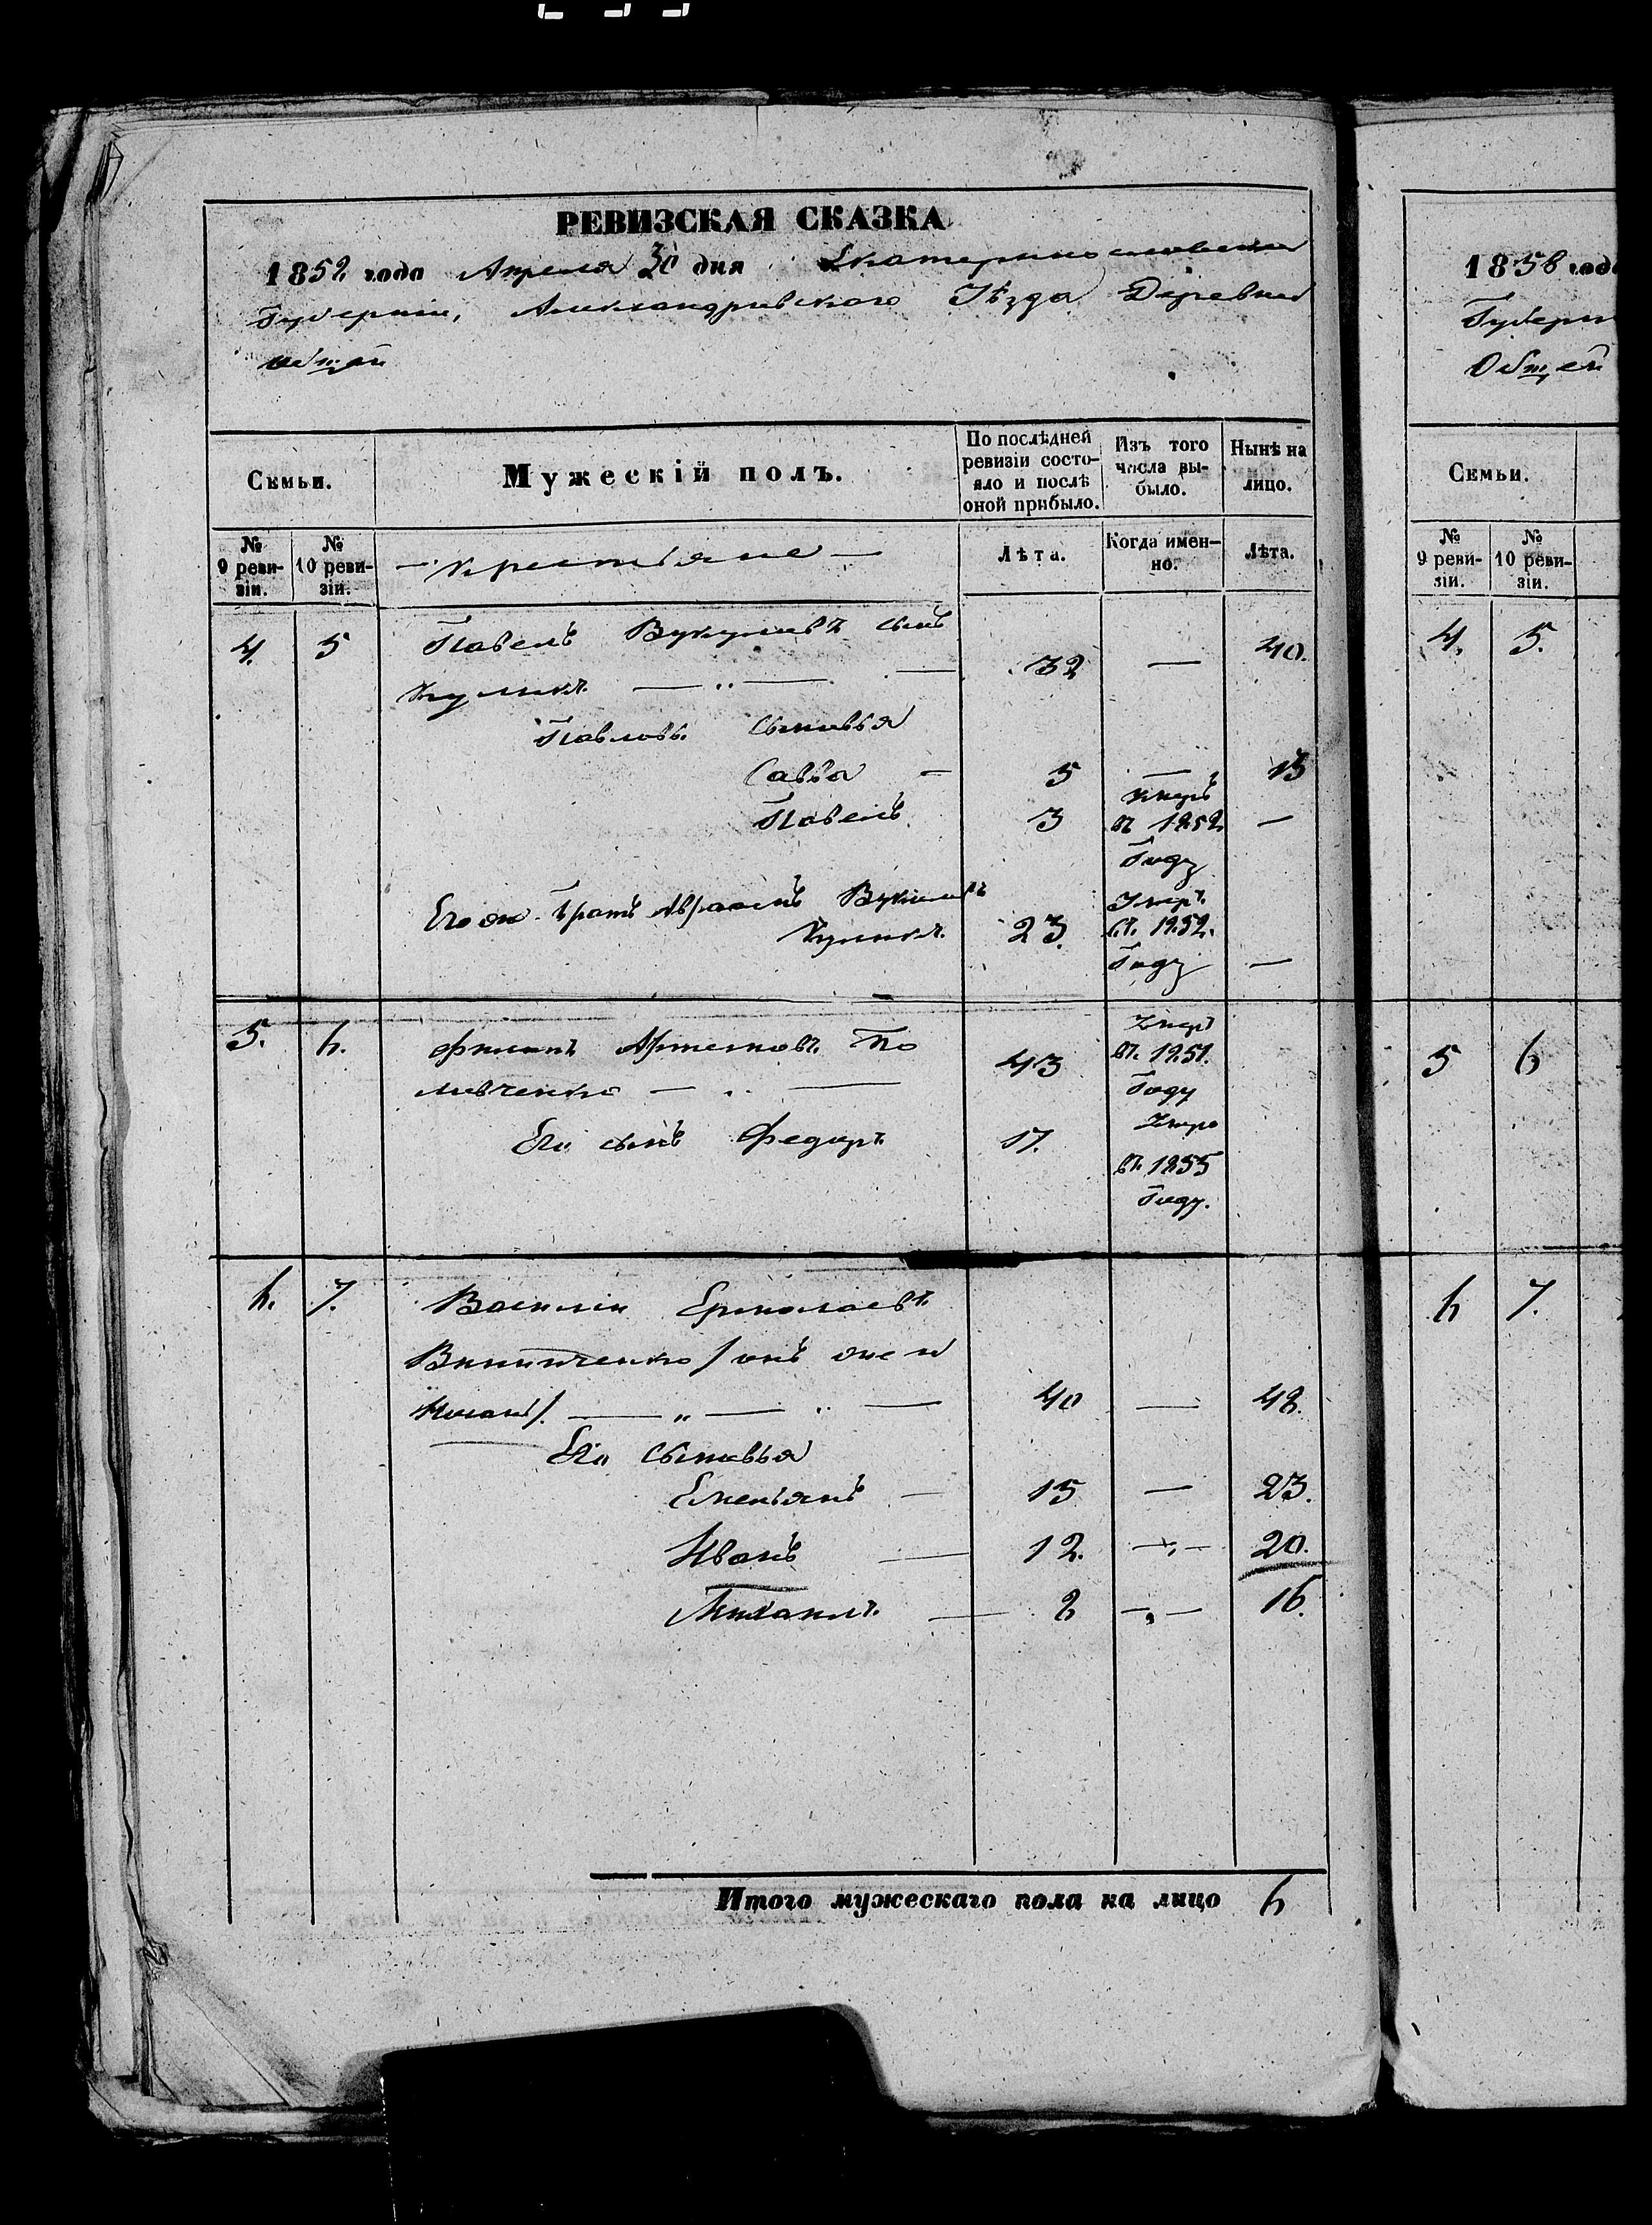 РЕВИЗСКАЯ СКАЗКА
1858 года Апреля 30 дня Екатеринославской
Губерніи, Александривского Уѣзда Деревни
Общей
Семьи.
Мужескій полъ.
По послѣдней ревизіи состояло и послѣ оной прибыло.
Изъ того числа выбыло.
Нынѣ на лицо.
№ 9 ревизіи.
№ 10 ревизіи.
— Крестьяне —
Лѣта.
Когда именно.
Лѣта.
4. 5 Павелъ Вукуловъ сынъ
Куликъ — „ — 32 — 40.
Павловы Сыновья
Савва — 5 — 13
Павелъ 3 умеръ въ 1852 Году —
Его же братъ Авраамъ
Куликъ 23. Умеръ въ 1852. Году —
5. 6. Филипъ Артемовъ По
ливченко — „ — 43 Умеръ въ 1851. Году
Его сынъ Федоръ 17. Умеръ въ 1855 Году.
6. 7. Василій Ермолаевъ
Винниченко / онъ же и
— „ — „ — 40 — 48.
Его Сыновья
Емельянъ — 15 — 23.
Иванъ — 12. — „ — 20.
Михаилъ — 8 — „ — 16.
Итого мужескаго пола на лицо 6
1858 года
Губерн
Общей
Семьи.
№ 9 ревизіи.
№ 10 ревизіи.
4. 5.
5 6
6 7.